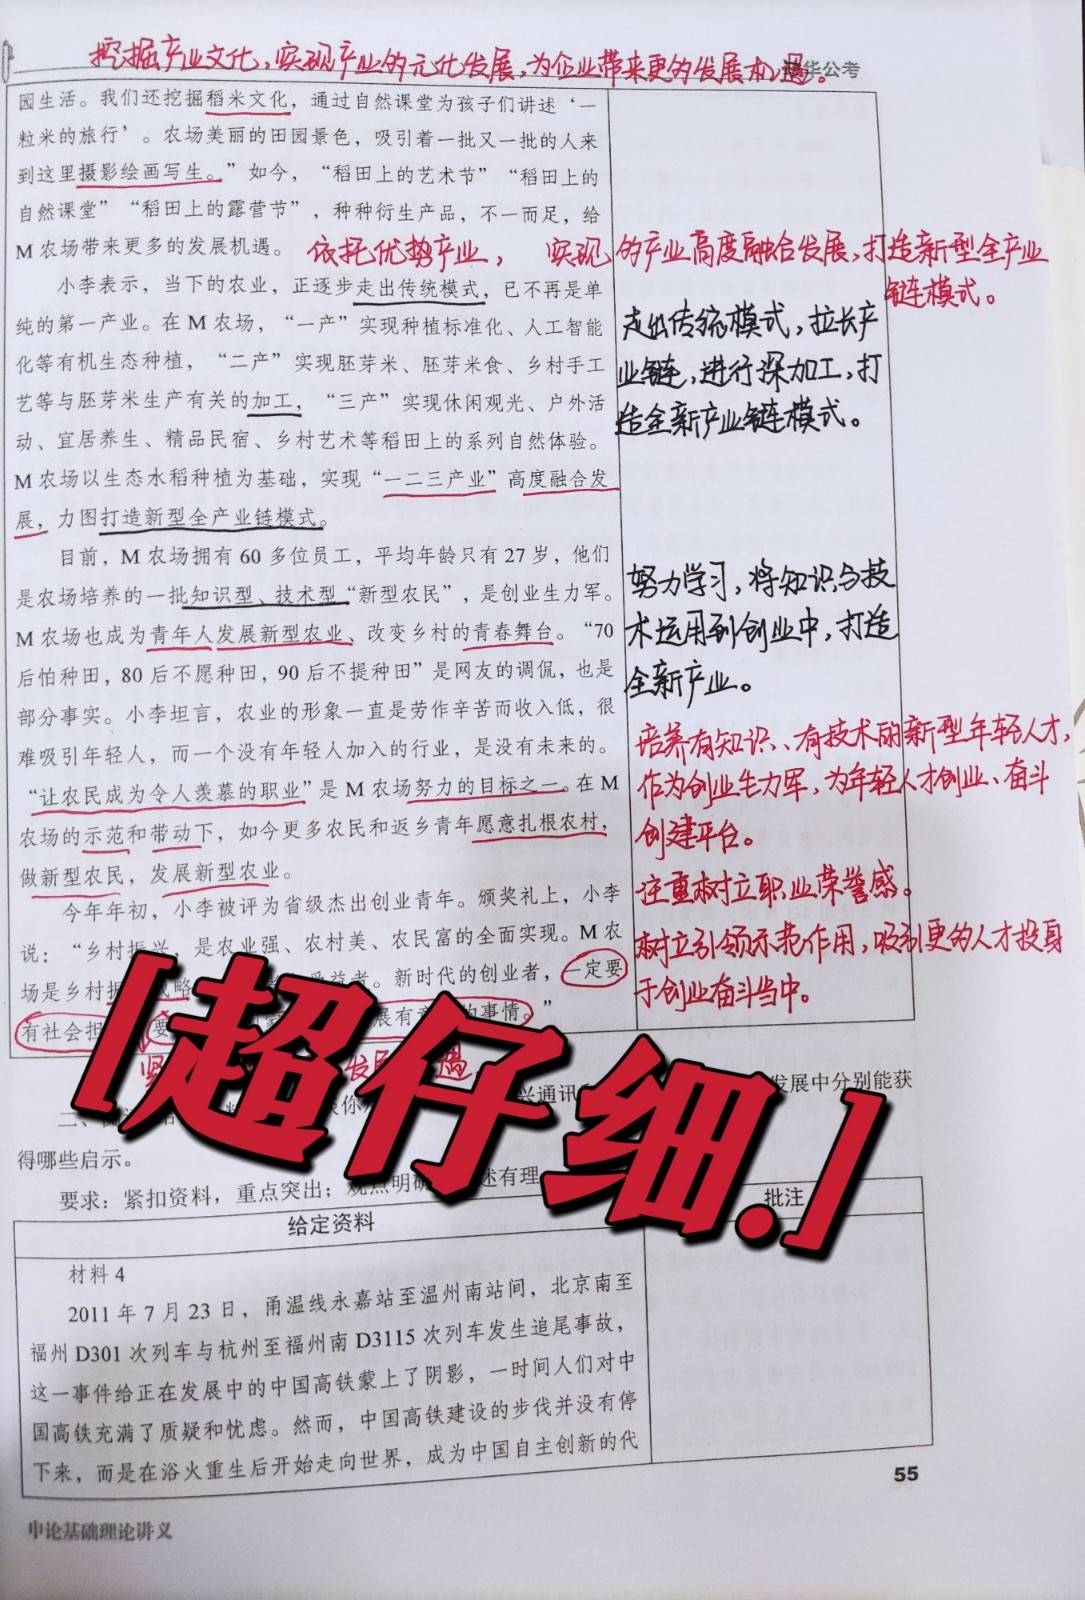 挖掘产业文化,实现产业的元化发展,为企业带来更的发展机遇。
华公考
园生活。我们还挖掘稻米文化,通过自然课堂为孩子们讲述‘一
粒米的旅行’。农场美丽的田园景色,吸引着一批又一批的人来
到这里摄影绘画写生。”如今,“稻田上的艺术节”“稻田上的
自然课堂”“稻田上的露营节”,种种衍生产品,不一而足,给
M农场带来更多的发展机遇。
依托优势产业, 实现的产业高度融合发展,打造新型全产业
链模式。
小李表示,当下的农业,正逐步走出传统模式,已不再是单
纯的第一产业。在M农场,“一产”实现种植标准化、人工智能
化等有机生态种植,“二产”实现胚芽米、胚芽米食、乡村手工
艺等与胚芽米生产有关的加工,“三产”实现休闲观光、户外活
动、宜居养生、精品民宿、乡村艺术等稻田上的系列自然体验。
M农场以生态水稻种植为基础,实现“一二三产业”高度融合发
展,力图打造新型全产业链模式。
走出传统模式,拉长产
业链,进行深加工,打
造全新产业链模式。
目前,M农场拥有60多位员工,平均年龄只有27岁,他们
是农场培养的一批知识型、技术型“新型农民”,是创业生力军。
M农场也成为青年人发展新型农业、改变乡村的青春舞台。“70
后怕种田,80后不愿种田,90后不提种田”是网友的调侃,也是
部分事实。小李坦言,农业的形象一直是劳作辛苦而收入低,很
难吸引年轻人,而一个没有年轻人加入的行业,是没有未来的。
“让农民成为令人羡慕的职业”是M农场努力的目标之一。在M
农场的示范和带动下,如今更多农民和返乡青年愿意扎根农村,
做新型农民,发展新型农业。
努力学习,将知识与技
术运用到创业中,打造
全新产业。
培养有知识、有技术的新型年轻人才,
作为创业生力军,为年轻人才创业、奋斗
创建平台。
注重树立职业荣誉感。
树立引领示范作用,吸引更的人才投身
于创业奋斗当中。
今年年初,小李被评为省级杰出创业青年。颁奖礼上,小李
说:“乡村振兴,是农业强、农村美、农民富的全面实现。M农
场是乡村振 战略 受益者。新时代的创业者,一定要
有社会担 要 展有 的事情。”
紧 发展 遇
[超仔细.]
二、 你 兴通讯 发展中分别能获
得哪些启示。
要求:紧扣资料,重点突出;观点明确 述有理
给定资料
批注
材料4
2011年7月23日,甬温线永嘉站至温州南站间,北京南至
福州D301次列车与杭州至福州南D3115次列车发生追尾事故,
这一事件给正在发展中的中国高铁蒙上了阴影,一时间人们对中
国高铁充满了质疑和忧虑。然而,中国高铁建设的步伐并没有停
下来,而是在浴火重生后开始走向世界,成为中国自主创新的代
55
申论基础理论讲义